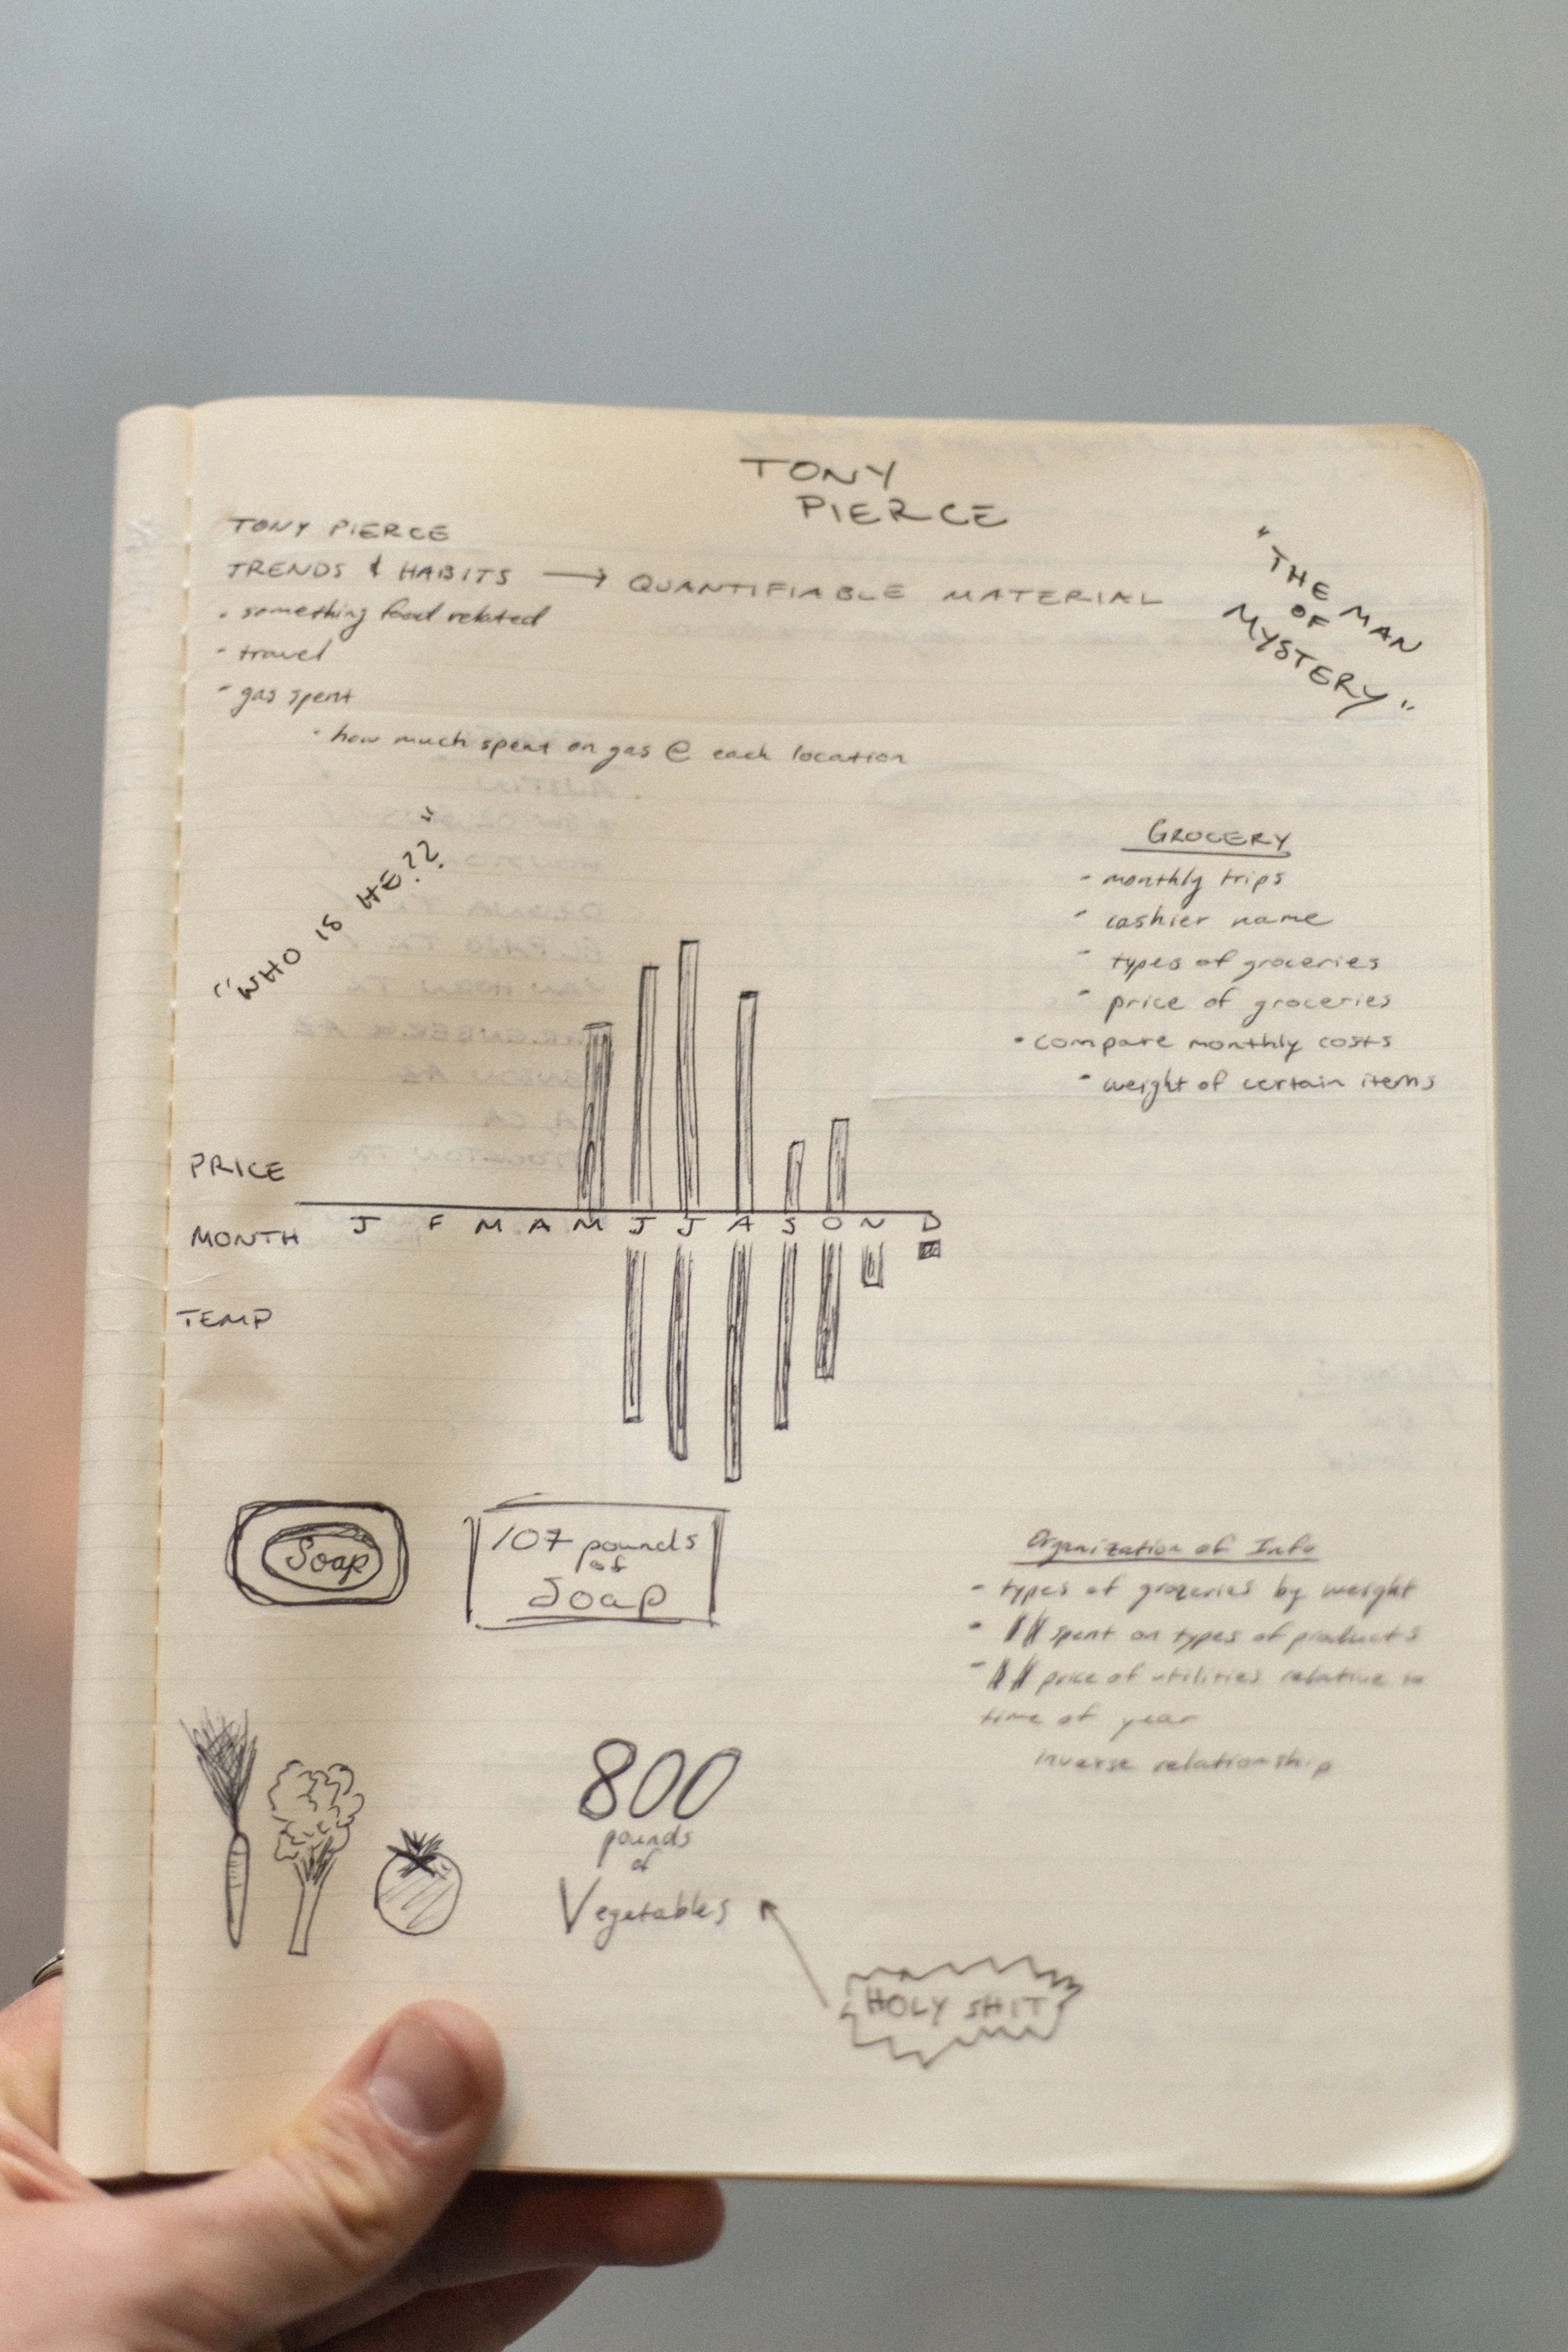 TONY
PIERCE
TONY PIERCE
TRENDS & HABITS → QUANTIFIABLE MATERIAL
- something food related
- travel
- gas spent
- how much spent on gas @ each location
"THE MAN
OF
MYSTERY"
"WHO IS HE??"
GROCERY
- monthly trips
- cashier name
- types of groceries
- price of groceries
• compare monthly costs
- weight of certain items
PRICE
MONTH J F M A M J J A S O N D
TEMP
Soap
107 pounds
of
Soap
Organization of Info
- types of groceries by weight
- spent on types of products
- price of utilities relative to
time of year
inverse relationship
800
pounds
of
Vegetables
HOLY SHIT